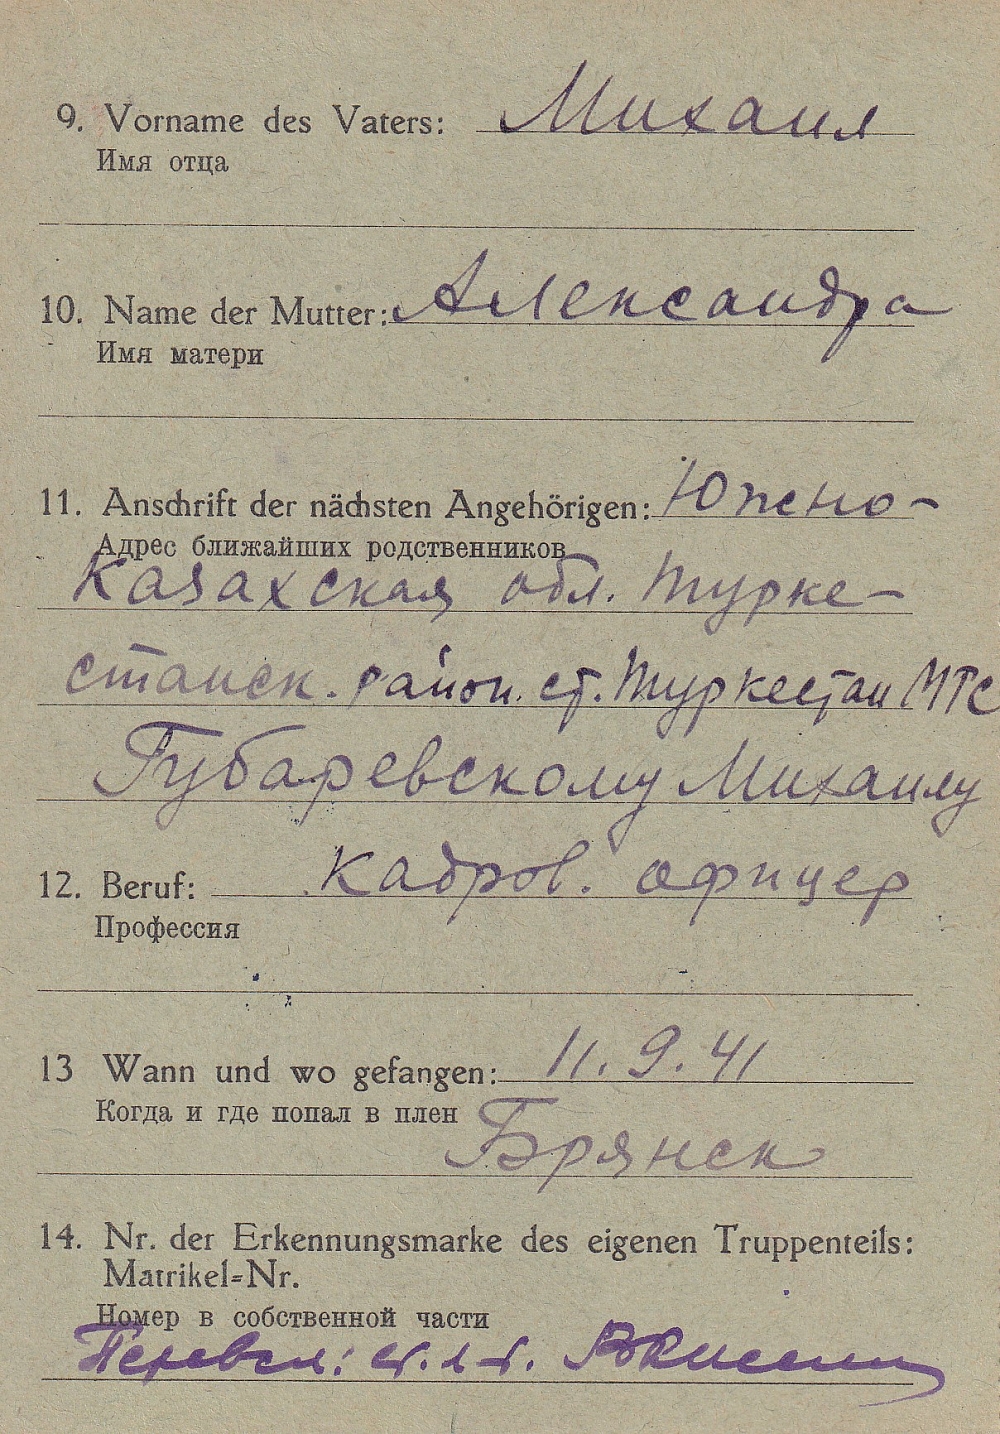 9. Vorname des Vaters: Михаил
Имя отца
10. Name der Mutter: Александра
Имя матери
11. Anschrift der nächsten Angehörigen: Южно-
Адрес ближайших родственников
Казахская обл. Турке-
станск. район. ст. Туркестан МТС
Губаревскому Михаилу
12. Beruf: кадров. офицер
Профессия
13 Wann und wo gefangen: 11.9.41
Когда и где попал в плен
Брянск
14. Nr. der Erkennungsmarke des eigenen Truppenteils:
Matrikel-Nr.
Номер в собственной части
Перевел: ст. л-т.